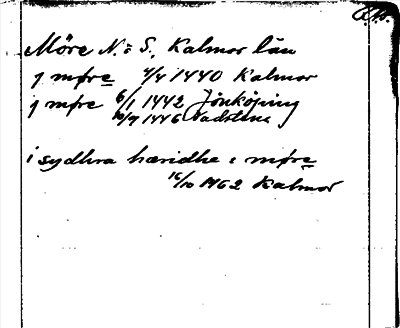 Möre N. o S. Kalmar län
j møre 4/4 1440 Kalmar
j møre 6/1 1442 Jönköping
10/4 1446 Vadstena
i sydhra hæridhe i møre
16/10 1462 Kalmar